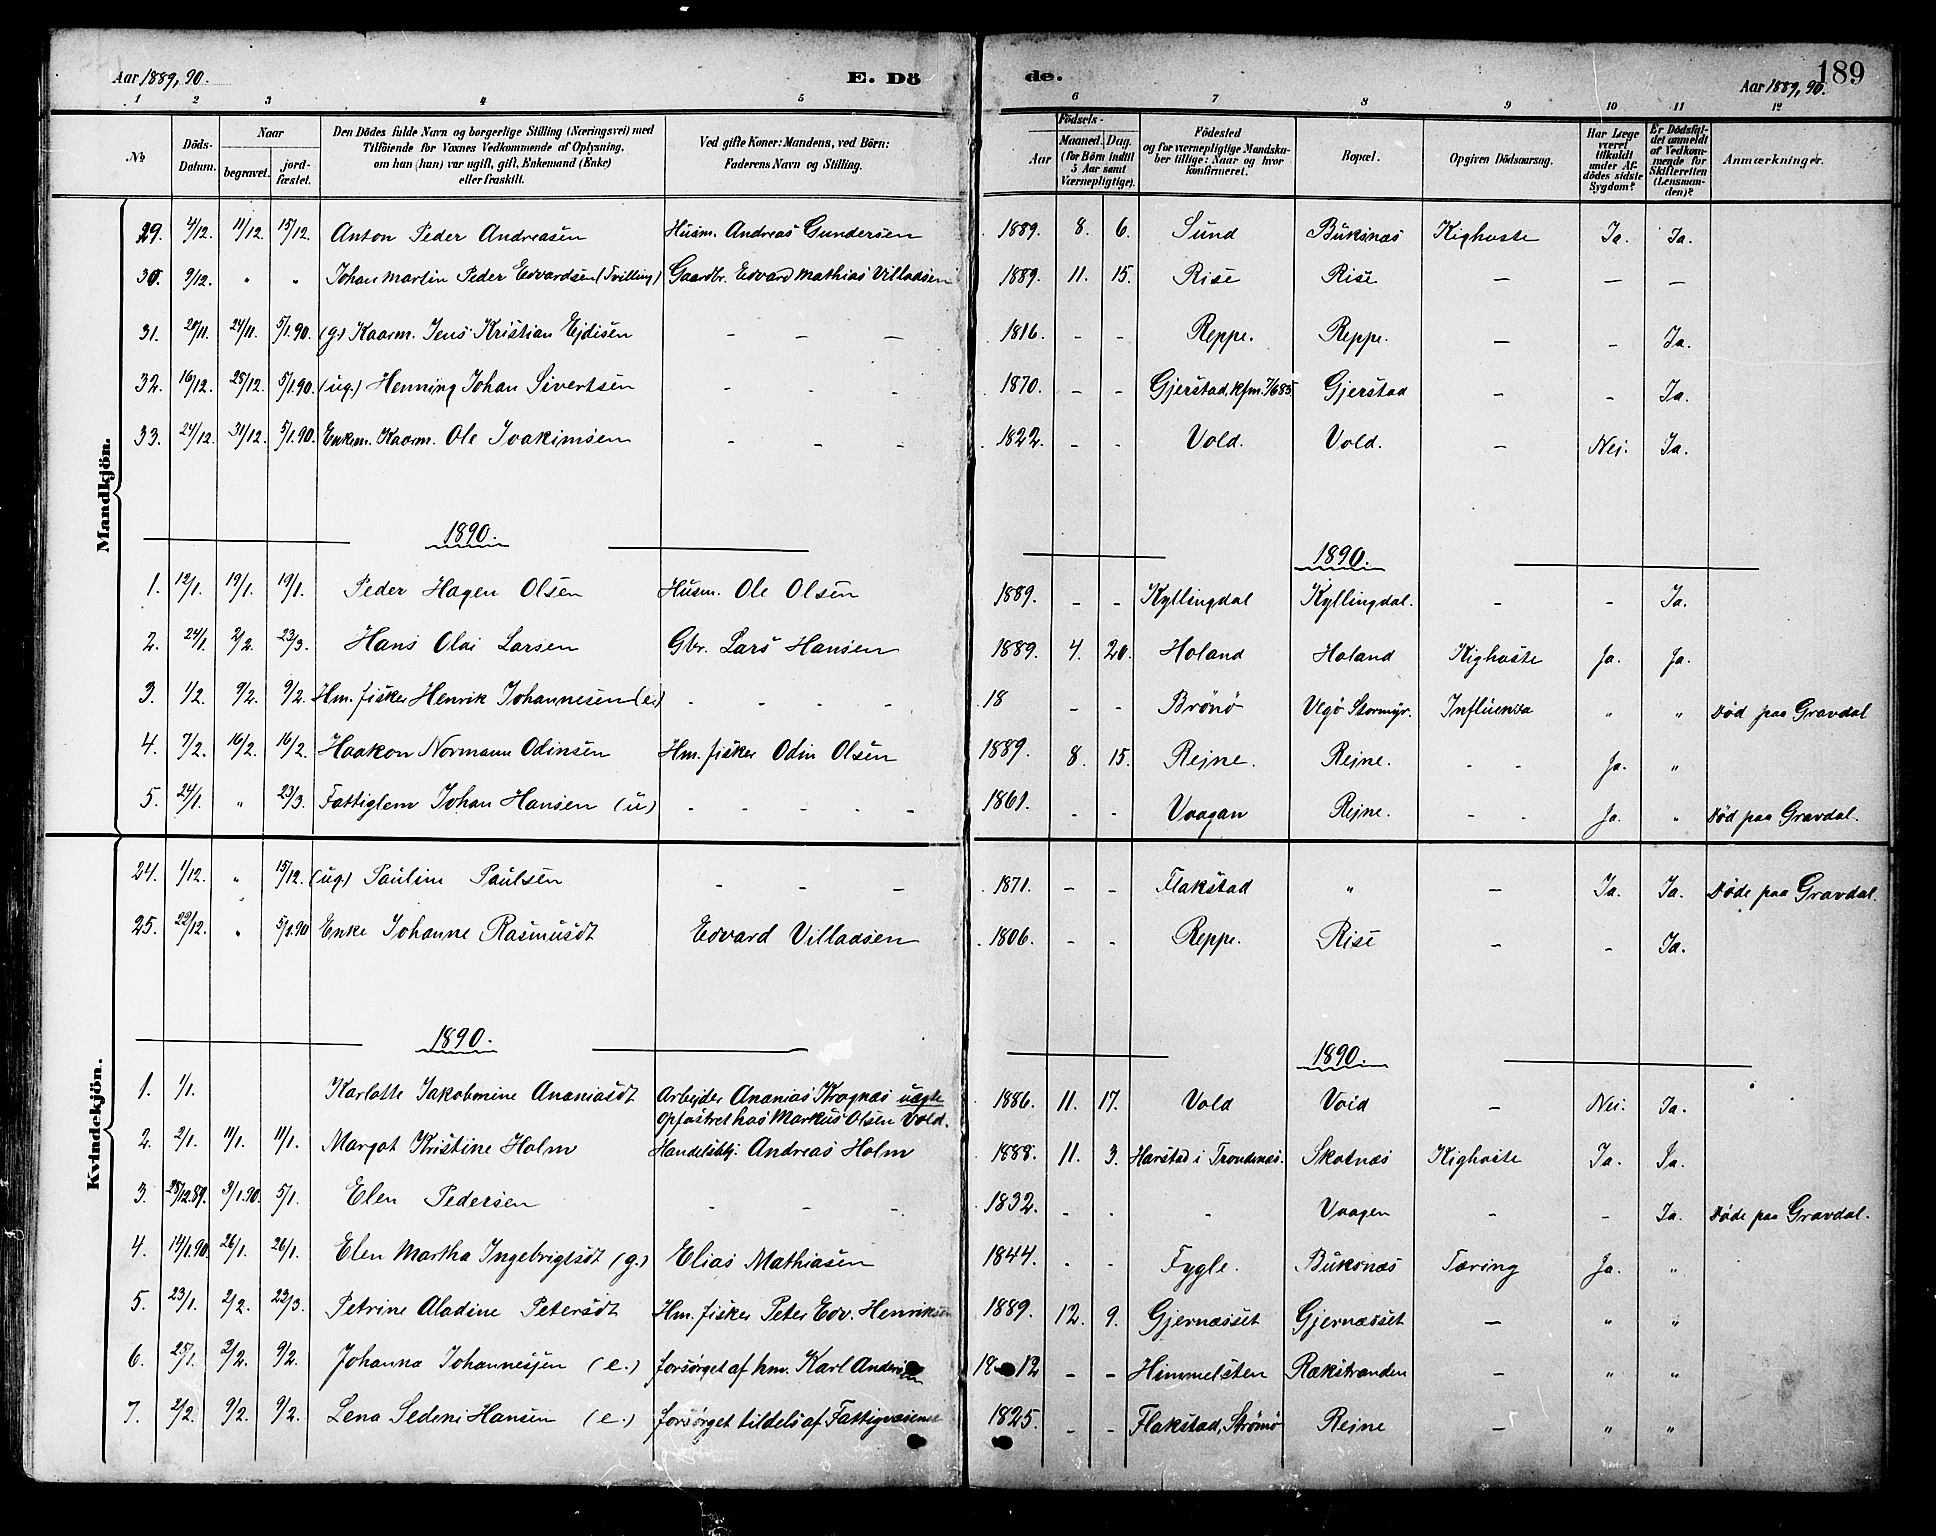 Aar 1889,90. E. Dö de. Aar 1889,90. 189
1 2 3 4 5 6 7 8 9 10 11 12
No Döds-Datum. Naar begravet. jord-fæstet. Den Dödes fulde Navn og borgerlige Stilling (Næringsvei) med Tilföiende for Voxnes Vedkommende af Oplysning, om han (hun) var ugift, gift, Enkemand (Enke) eller fraskilt. Ved gifte Koner: Mandens, ved Börn: Faderens Navn og Stilling. Födsels- Aar Maaned. Dag. (for Börn indtil 5 Aar samt Værnepligtige). Födested og for værnepligtige Mandskaber tillige: Naar og hvor konfirmeret. Bopæl. Opgiven Dödsaarsag. Har Læge været tilkaldt under Afdödes sidste Sygdom? Er Dödsfaldet anmeldt af Vedkommende for Skifteretten (Lensmanden)? Anmærkninger.
Mandkjön.
29. 4/12. 11/12. 15/12. Anton Peder Andreasen Husm. Andreas Gundersen 1889. 8. 6. Sund Buksnæs Kighoste Ja. Ja.
30. 9/12. " " Johan Martin Peder Edvardsen (Tvilling) Gaardbr. Edvard Mathias Villadsen 1889. 11. 15. Rise Rise — — —
31. 20/11. 24/11. 5/1.90. (g.) Kaarm. Jens Kristian Ejdisen - - - 1816. - - Reppe. Reppe. — - Ja.
32. 16/12. 28/12. 5/1.90. (ug.) Henning Johan Sivertsen - - - 1870. - - Gjerstad, kfm. 7/6 85. Gjerstad — - Ja.
33. 24/12. 31/12. 5/1.90. Enkem. Kaarm. Ole Joakimsen - - - 1822. - - Vold. Vold. — Nei. Ja.
1890. 1890.
1. 12/1. 19/1. 19/1. Peder Hagen Olsen Husm. Ole Olsen 1889. - - Kyllingdal Kyllingdal. - - Ja.
2. 24/1. 2/2. 23/3. Hans Olai Larsen Gbr. Lars Hansen 1889. 4. 20. Holand Holand Kighoste Ja. Ja.
3. 1/2. 9/2. 9/2. Hm. fisker Henrik Johannesen (e) - - - - 18 - - Brönö Vegö Stormyr. Influenza " " Död paa Gravdal
4. 7/2. 16/2. 16/2. Haakon Normann Odinsen Hm. fisker Odin Olsen 1889. 8. 15. Rejne. Rejne. - - Ja. "
5. 24/1. " 23/3. Fattiglem Johan Hansen (u) - - - - - 1861. - - Vaagan Rejne. - - Ja. " Död paa Gravdal.
Kvindekjön.
24. 1/12. " 15/12. (ug.) Pauline Paulsen - - - 1871. - - Flakstad " — Ja. Ja. Döde paa Gravdal.
25. 22/12. " 5/1.90 Enke Johanne Rasmusdt Edvard Villadsen 1806. - - Reppe. Rise - - Ja.
1890. 1890.
1. 1/1. Karlotte Jakobmine Ananiasdt Arbejder Ananias Kragnæs uægte 1886. 11. 17. Vold Vold - Nei. Ja.
Opfostret hos Markus Olsen Vold.
2. 2/1. 11/1. 11/1. Margot Kristine Holm Handelsbtj. Andreas Holm 1888. 11. 3. Harstad i Trondenæs. Skotnæs Kighoste Ja. Ja.
3. 28/12.89. 3/1.90. 5/1. Elen Pedersen - - - 1832. - - - Vaagen - - Ja. Döde paa Gravdal.
4. 14/1.90. 26/1. 26/1. Elen Martha Ingebrigtsdt (g.) Elias Mathiasen 1844. - - Fygle. Buksnæs Tæring Ja. "
5. 23/1. 2/2. 23/3. Petrine Aladine Petersdt Hm. fisker Peter Edv. Henriksen 1889. 12. 9. Gjernæsset Gjernæsset — " "
6. 25/1. 2/2. 9/2. Johanna Johannessen (e.) forsørget af hm. Karl Andersen 1812 - - Himmelsten Rækstranden — " "
7. 2/2. 9/2. 9/2. Lena Sedeni Hansen (e.) forsørget tildels af Fattigvæsenet 1825. - - Flakstad, Strömö Rejne — " "